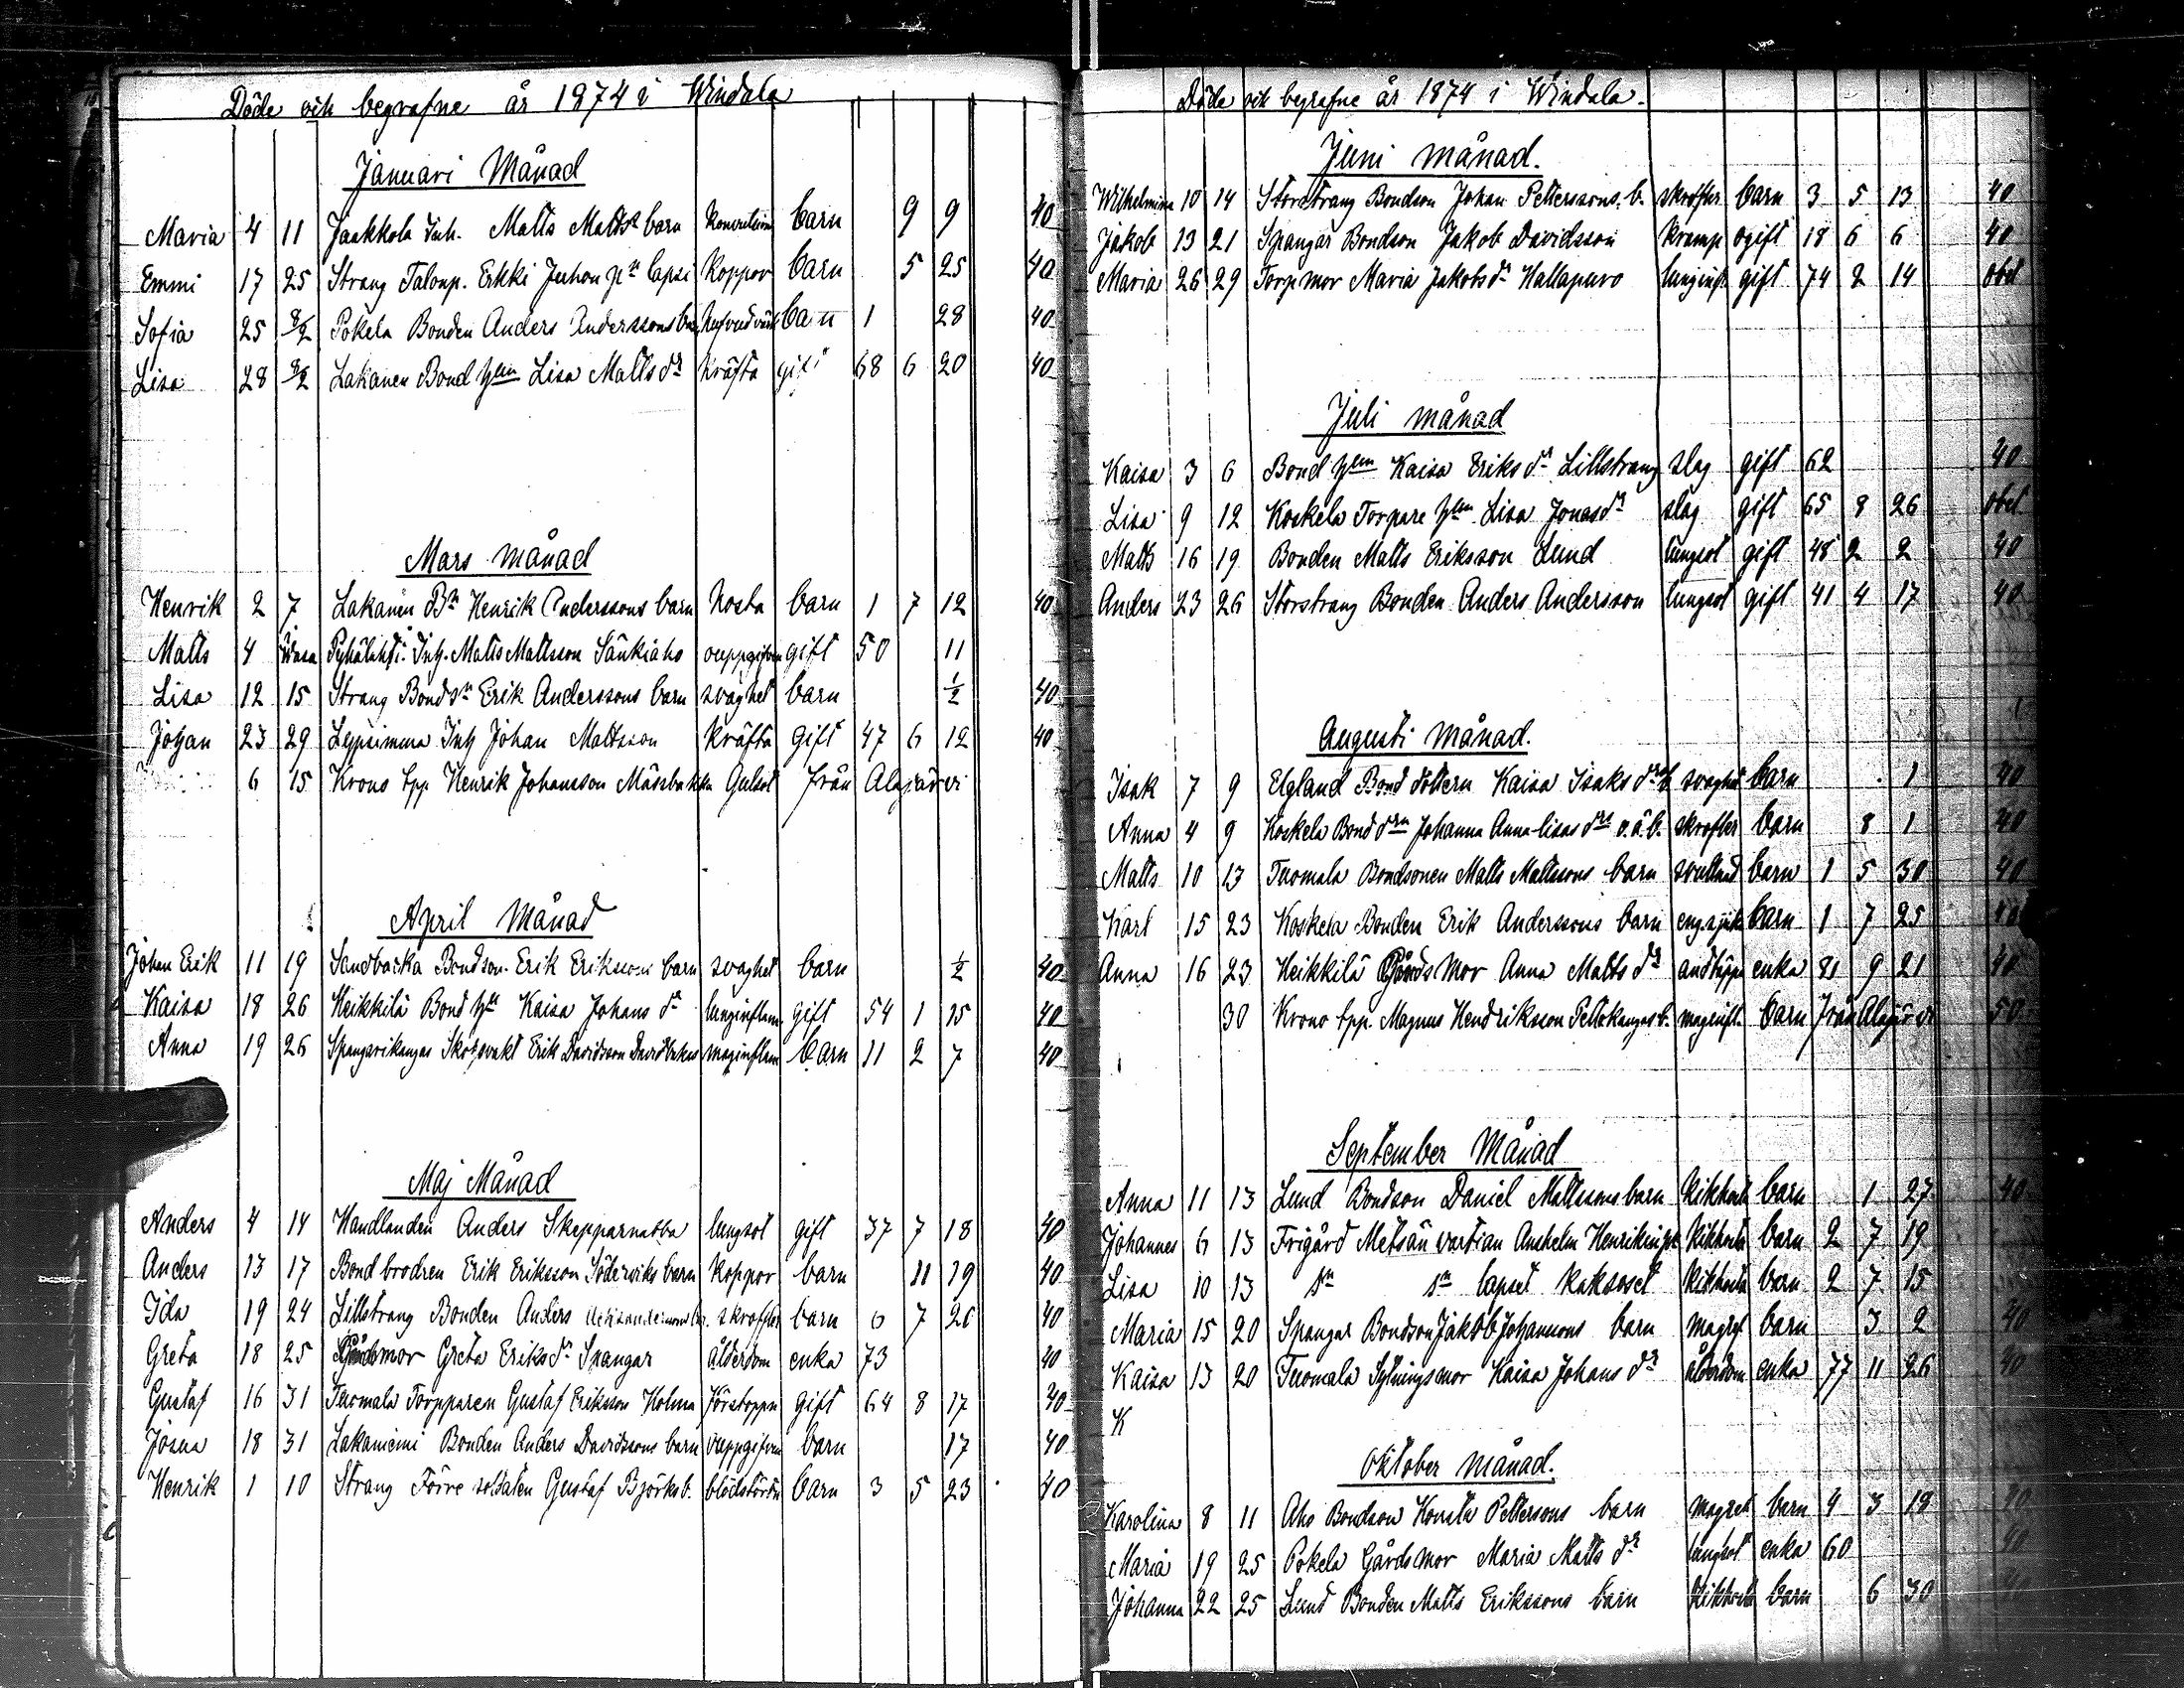 Döde och begrafne år 1874 i Windala
Januari Månad
Maria 4 11 Jaakkola Inh. Matts Matts barn barn 9 9 40
Emmi 17 25 Strang Talonp. Erkki Juhon pn lapsi koppor barn 5 25 40
Sofia 25 8/2 Pokela Bonden Anders Anderssons barn 1 28 40
Lisa 28 8/2 Lakanen Bond hun Lisa Matts dr kräfta gift 68 6 20 40
Mars månad
Henrik 2 7 Lakanen Bn Henrik Anderssons barn hosta barn 1 7 12 40
Matts 4 Wasa Pyhälahti Inh. Matts Mattsson Sänkiaho ouppgifven gift 50 11
Lisa 12 15 Strang Bondsn Erik Anderssons barn svaghet barn 1/2 40
Johan 23 29 Inh Johan Mattsson kräfta gift 47 6 12 40
6 15 Krono tpp. Henrik Johansson Gulsot från Alajärvi
April Månad
Johan Erik 11 19 Sandbacka Bondson Erik Eriksson barn svaghet barn 1/2 40
Kaisa 18 26 Heikkilä Bond hu Kaisa Johans dr lunginflam. gift 54 1 15 40
Anna 19 26 Spangarikangas Skogsvakt Erik Davidsson maginflam barn 11 2 7 40
Maj Månad
Anders 4 14 Handlanden Anders Skepparnabba lungsot gift 37 7 18 40
Anders 13 17 Bond brodren Erik Eriksson Söderviks barn koppor barn 11 19 40
Ida 19 24 Lillstrang Bonden Anders skrofler barn 6 7 26 40
Greta 18 25 Gårdsmor Greta Eriks dr Spangar ålderdom enka 73 40
Gustaf 16 31 Tuomala Torpparen Gustaf Eriksson Holma förstoppn gift 64 8 17 40
Josua 18 31 Lakaniemi Bonden Anders Davidssons barn ouppgifven barn 17 40
Henrik 1 10 Strang Förre soldaten Gustaf Björks b. blodstörtn barn 3 5 23 40
Döde och begrafne år 1874 i Windala.
Juni månad.
Wilhelmina 10 14 Storstrang Bondson Johan Petterssons b. skrofler barn 3 5 13 40
Jakob 13 21 Spangar Bondson Jakob Davidsson kramp ogift 18 6 6 40
Maria 26 29 Torp mor Maria Jakobs dr Hallapuro lunginfl gift 74 2 14 obet
Juli månad
Kaisa 3 6 Bond hun Kaisa Eriks dr Lillstrang slag gift 62 40
Lisa 9 12 Koskela Torpare hun Lisa Jonas dr slag gift 65 8 26 obet
Matts 16 19 Bonden Matts Eriksson Lund lungsot gift 48 2 2 40
Anders 23 26 Storstrang Bonden Anders Andersson lungsot gift 41 4 17 40
Augusti månad.
Isak 7 9 Elgland Bond dottern Kaisa Isaks drs b svaghet barn 1 40
Anna 4 9 Koskela Bond drn Johanna Annalisas drs o.ä.b. skrofler barn 8 1 40
Matts 10 13 Tuomala Bondsonen Matts Mattssons barn barn 1 5 30 40
Karl 15 23 Koskela Bonden Erik Anderssons barn eng. sjuk barn 1 7 25 40
Anna 16 23 Heikkilä Gårds mor Anna Matts dr andtäppa enka 81 9 21 40
30 Krono tpp. Magnus Hendriksson Peltokangas b. maginfl. barn från Alajärvi 50
September Månad
Anna 11 13 Lund Bondson Daniel Mattssons barn kikhosta barn 1 27 40
Johannes 6 13 Frigård Metsän vartian Anshelm Henrikin pk kikhosta barn 2 7 19
Lisa 10 13 dn dn lapset kaksoset kikhosta barn 2 7 15
Maria 15 20 Spangar Bondson Jakob Johanssons barn magref barn 3 2 40
Kaisa 13 20 Tuomala Sytningsmor Kaisa Johans dr ålderdom enka 77 11 26 40
K
Oktober månad.
Karolina 8 11 Aho Bondson Konsta Petterssons barn magref barn 4 3 18 20
Maria 19 25 Pokela Gårds mor Maria Matts dr lungsot enka 60 40
Johanna 22 25 Lund Bonden Matts Erikssons barn kikhosta barn 6 30 40